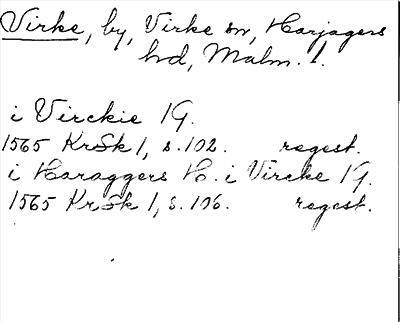 Virke, by, Virke sn, Harjagers
hd, Malm. l.
i Virckie 1 G.
1565 KrSk 1, s. 102. regest.
i Haraggers H. i Vircke 1 G.
1565 KrSk 1, s. 106. regest.